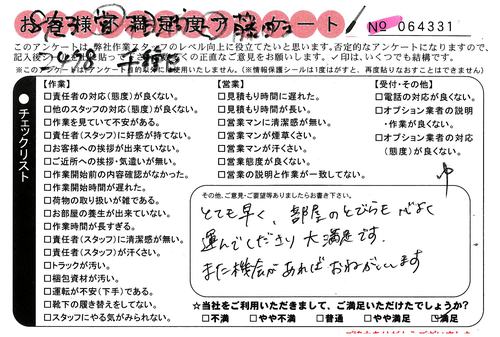 お客様官満足度アンケート
No 064331
このアンケートは、弊社作業スタッフのレベル向上に役立てたいと思います。否定的なアンケートになりますので、
記入後
くの正直なご意見をお願いします。✓印は、いくつでも結構です。
※このアンケートは
目的以外には使用いたしません。(※情報保護シールは1度がすと、再度貼りなおすことはできません)
● チェックリスト
【作業】
□責任者の対応(態度)が良くない。
□他のスタッフの対応(態度)が良くない。
□作業を見ていて不安がある。
□責任者(スタッフ)に好感が持てない。
□お客様への挨拶が出来ていない。
□ご近所への挨拶・気遣いが無い。
□作業開始前の内容確認がなかった。
□作業開始時間が遅れた。
□荷物の取り扱いが雑である。
□お部屋の養生が出来ていない。
□作業時間が長すぎる。
□責任者(スタッフ)に清潔感が無い。
□責任者(スタッフ)が汗くさい。
□トラックが汚い。
□梱包資材が汚い。
□運転が不安(下手)である。
□靴下の履き替えをしてない。
□スタッフにやる気がみられない。
【営業】
□見積もり時間に遅れた。
□見積もり時間が長い。
□営業マンに清潔感が無い。
□営業マンが煙草くさい。
□営業マンが汗くさい。
□営業態度が良くない。
□営業の説明と作業が一致してない。
【受付・その他】
□電話の対応が良くない。
□オプション業者の説明
・作業が良くない。
□オプション業者の対応
(態度)が良くない。
その他、ご意見・ご要望等ありましたらお書き下さい。
とても早く、部屋のとびらも
運んでくださり大満足です。
また機会があればおねがいします
☆当社をご利用いただきまして、ご満足いただけたでしょうか?
□不満 □やや不満 □普通 □やや満足 ☑満足